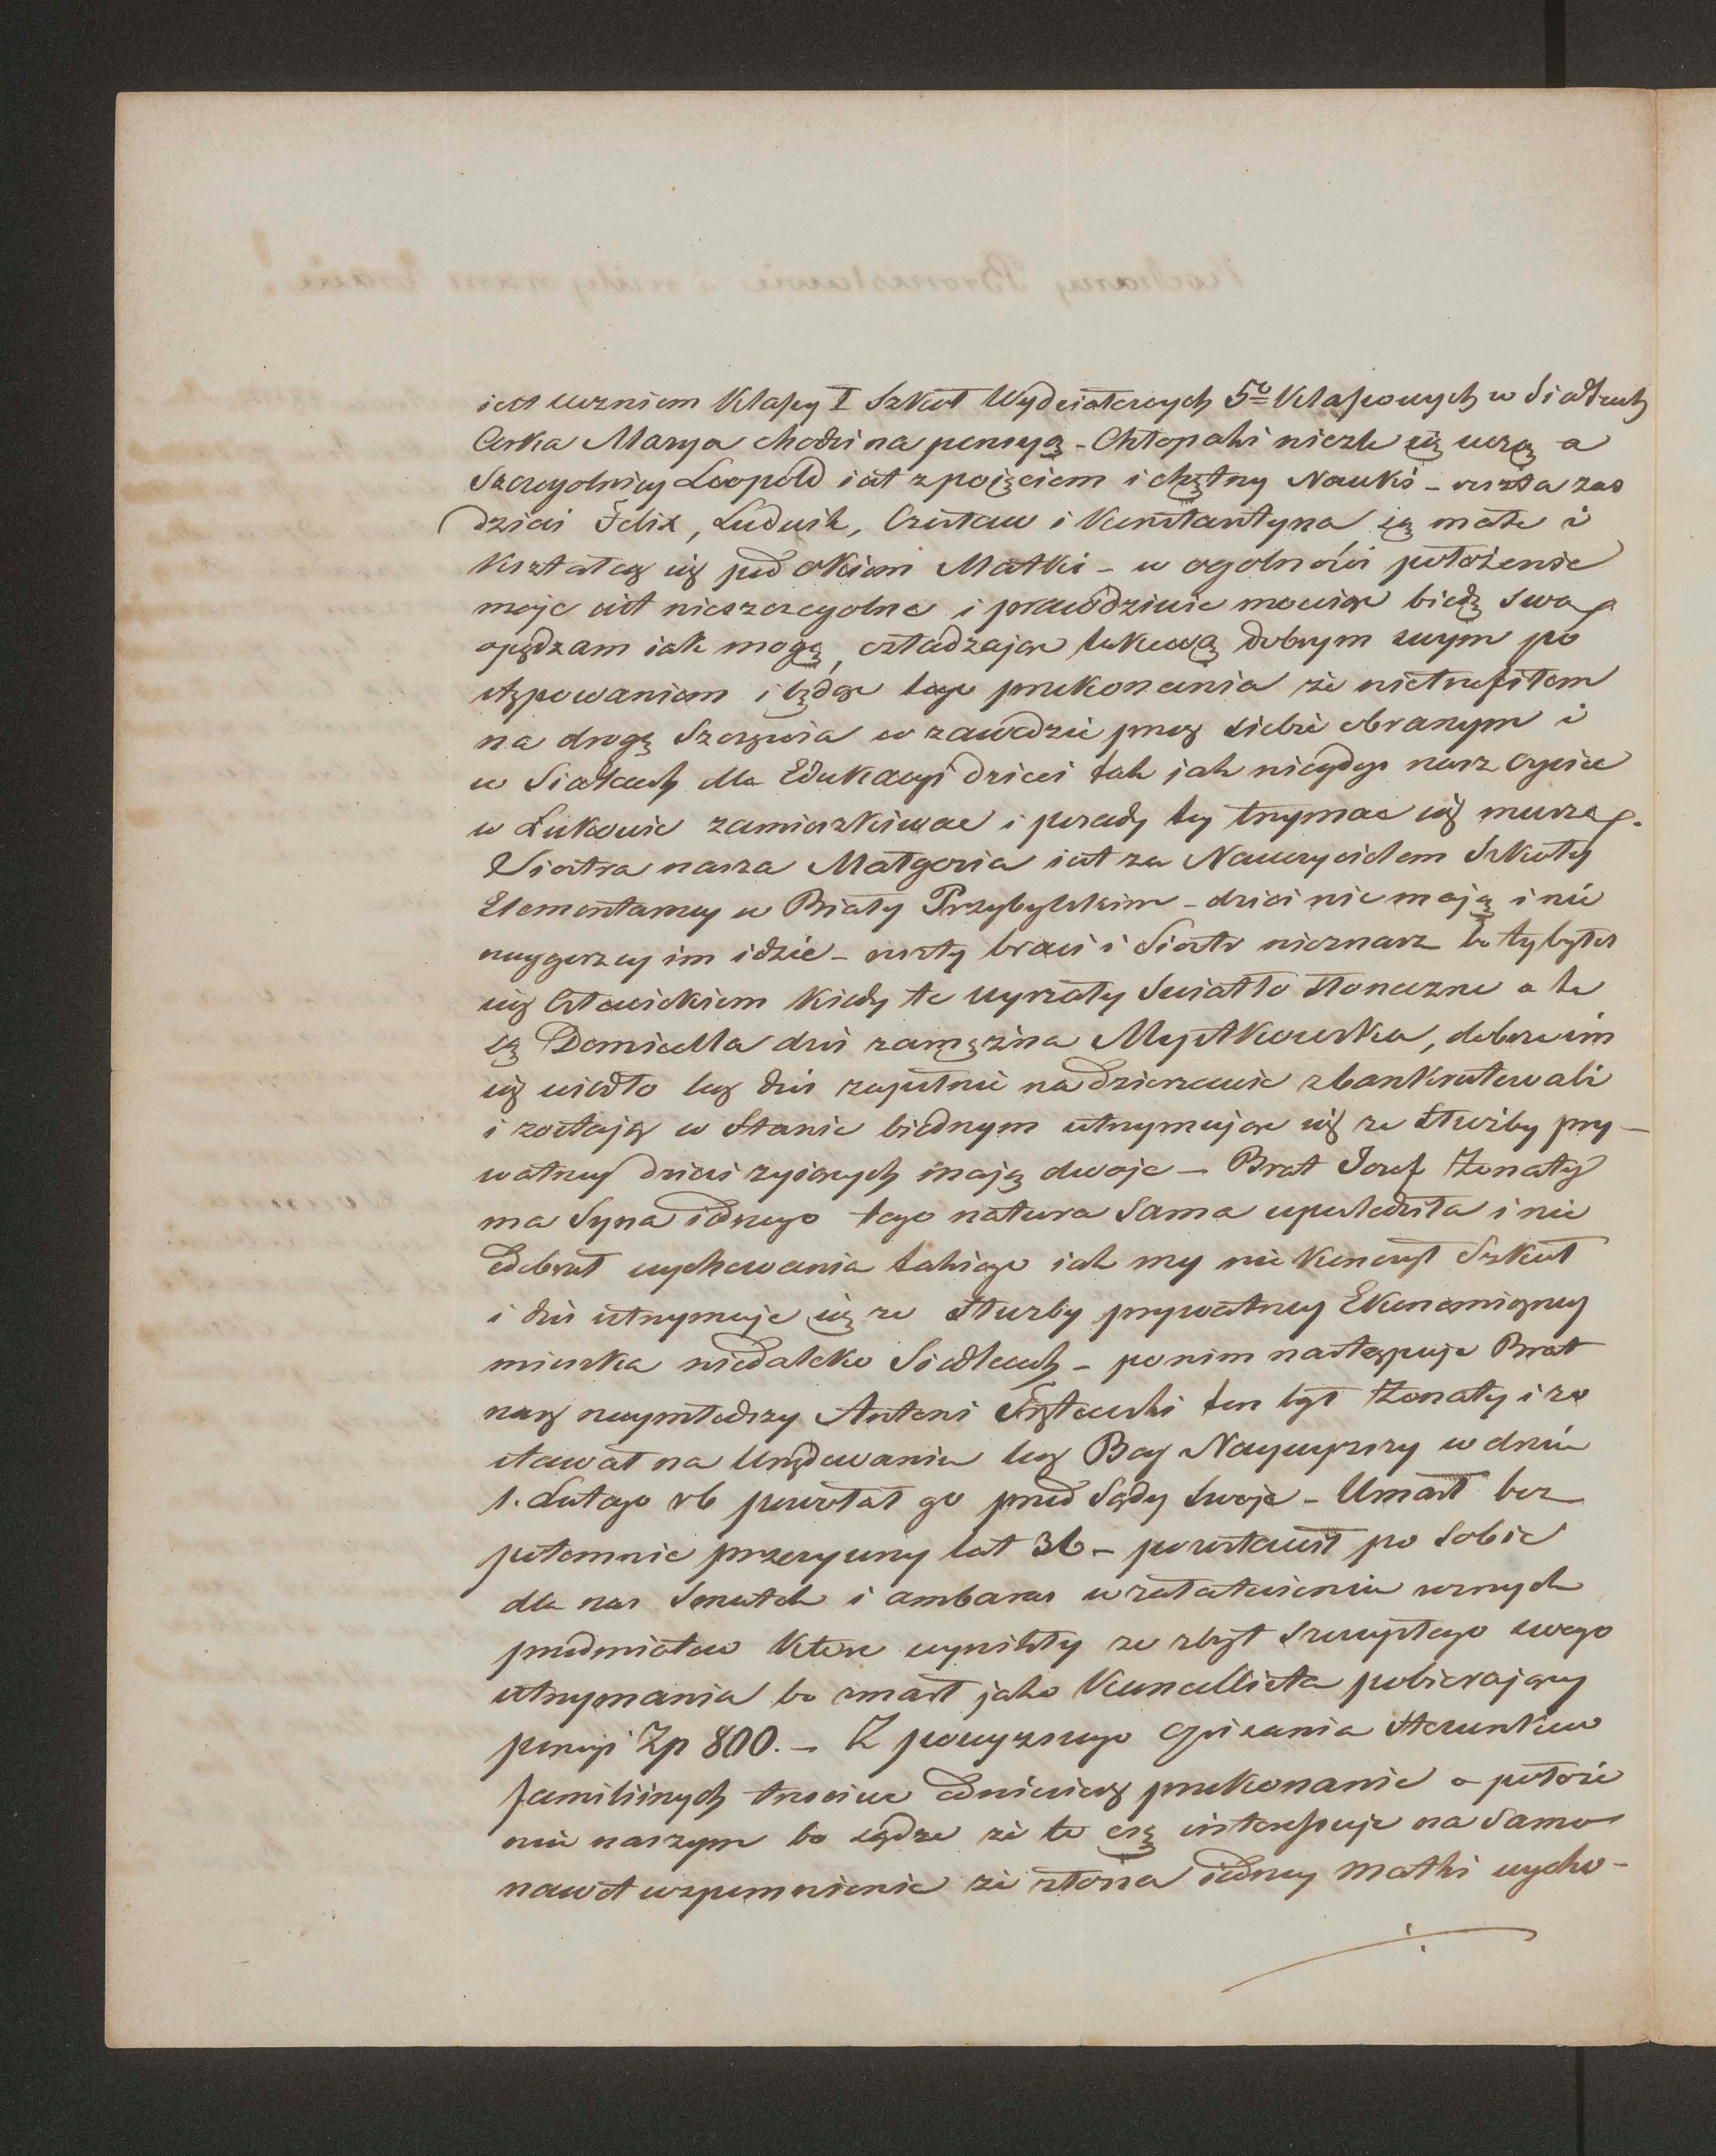 jest uczniem Klassy I Szkoł Wydziałowych 5o Klassowych w Siedlcach
Corka Marya chodzi na pensyą - Chłopaki nieźle się uczą a
Szczegolniey Leopold iest z poięciem i chętny Nauki - reszta zas
dzieci Felix, Ludwik, Czesław i Konstantyna, są małe i
kształcą się pod okiem Matki - w ogolności położenie
moje iest nieszczegolne i prawdziwie mowiąc biedę swą
opędzam iak mogę, osładzając takową dobrym swym po
stępowaniem i będąc tego przekonania że nietrafiłem
na drogę Szczęścia w zawodzie przez siebie obranym i
w Siedlcach dla Edukacyi dzieci tak jak niegdyś nasz Oyciec
w Łukowie zamieszkiwać i posady tey trzymać się muszę.
Siostra nasza Małgorza iest za Nauczycielem Szkoły
Elementarney w Biały Przybylskim - dzieci nie mają i nie
naygorzey im idzie - reszty braci i Siostr nieznasz bo ty byłeś
iuż Człowiekiem kiedy te uyrzały Swiatło słoneczne a te
są Domicella dziś zamężna Mystkowska, dobrze im
się wiodło lecz dziś zupełnie na dzierzawie zbankrutowali
i zostają w Stanie biednym utrzymując się ze Służby pry-
watney dzieci zyiących mają dwoje - Brat Jozef Żonaty
ma Syna iednego tego natura Sama upośledziła i nie
odebrał wychowania takiego iak my nie kończył Szkoł
i dziś utrzymuje się ze służby prywatney Ekonomiczney
mieszka niedaleko Siedlec - po nim następuje Brat
nasz naymłodszy Antoni ten był Żonaty i zo
stawał na Urzędowaniu lecz Bog Naywyższy w dniu
1. Lutego rb powołał go przed Sądy Swoje - Umarł bez
potomnie przeżywszy lat 36 - pozostawił po Sobie
dla nas Smutek i ambaras w załatwieniu roznych
przedmiotow ktore wynikły ze zbyt szczupłego swego
utrzymania bo umarł jako Kancellista pobierający
pensyi Zp 800. - Z powyzszego Opisania Stosunkow
familiinych troiciu odniesiesz przekonanie o położe
niu naszym bo sądzę że to cię interessuje na Samo
nawet wspomnienie że z łona iedney Matki wycho-